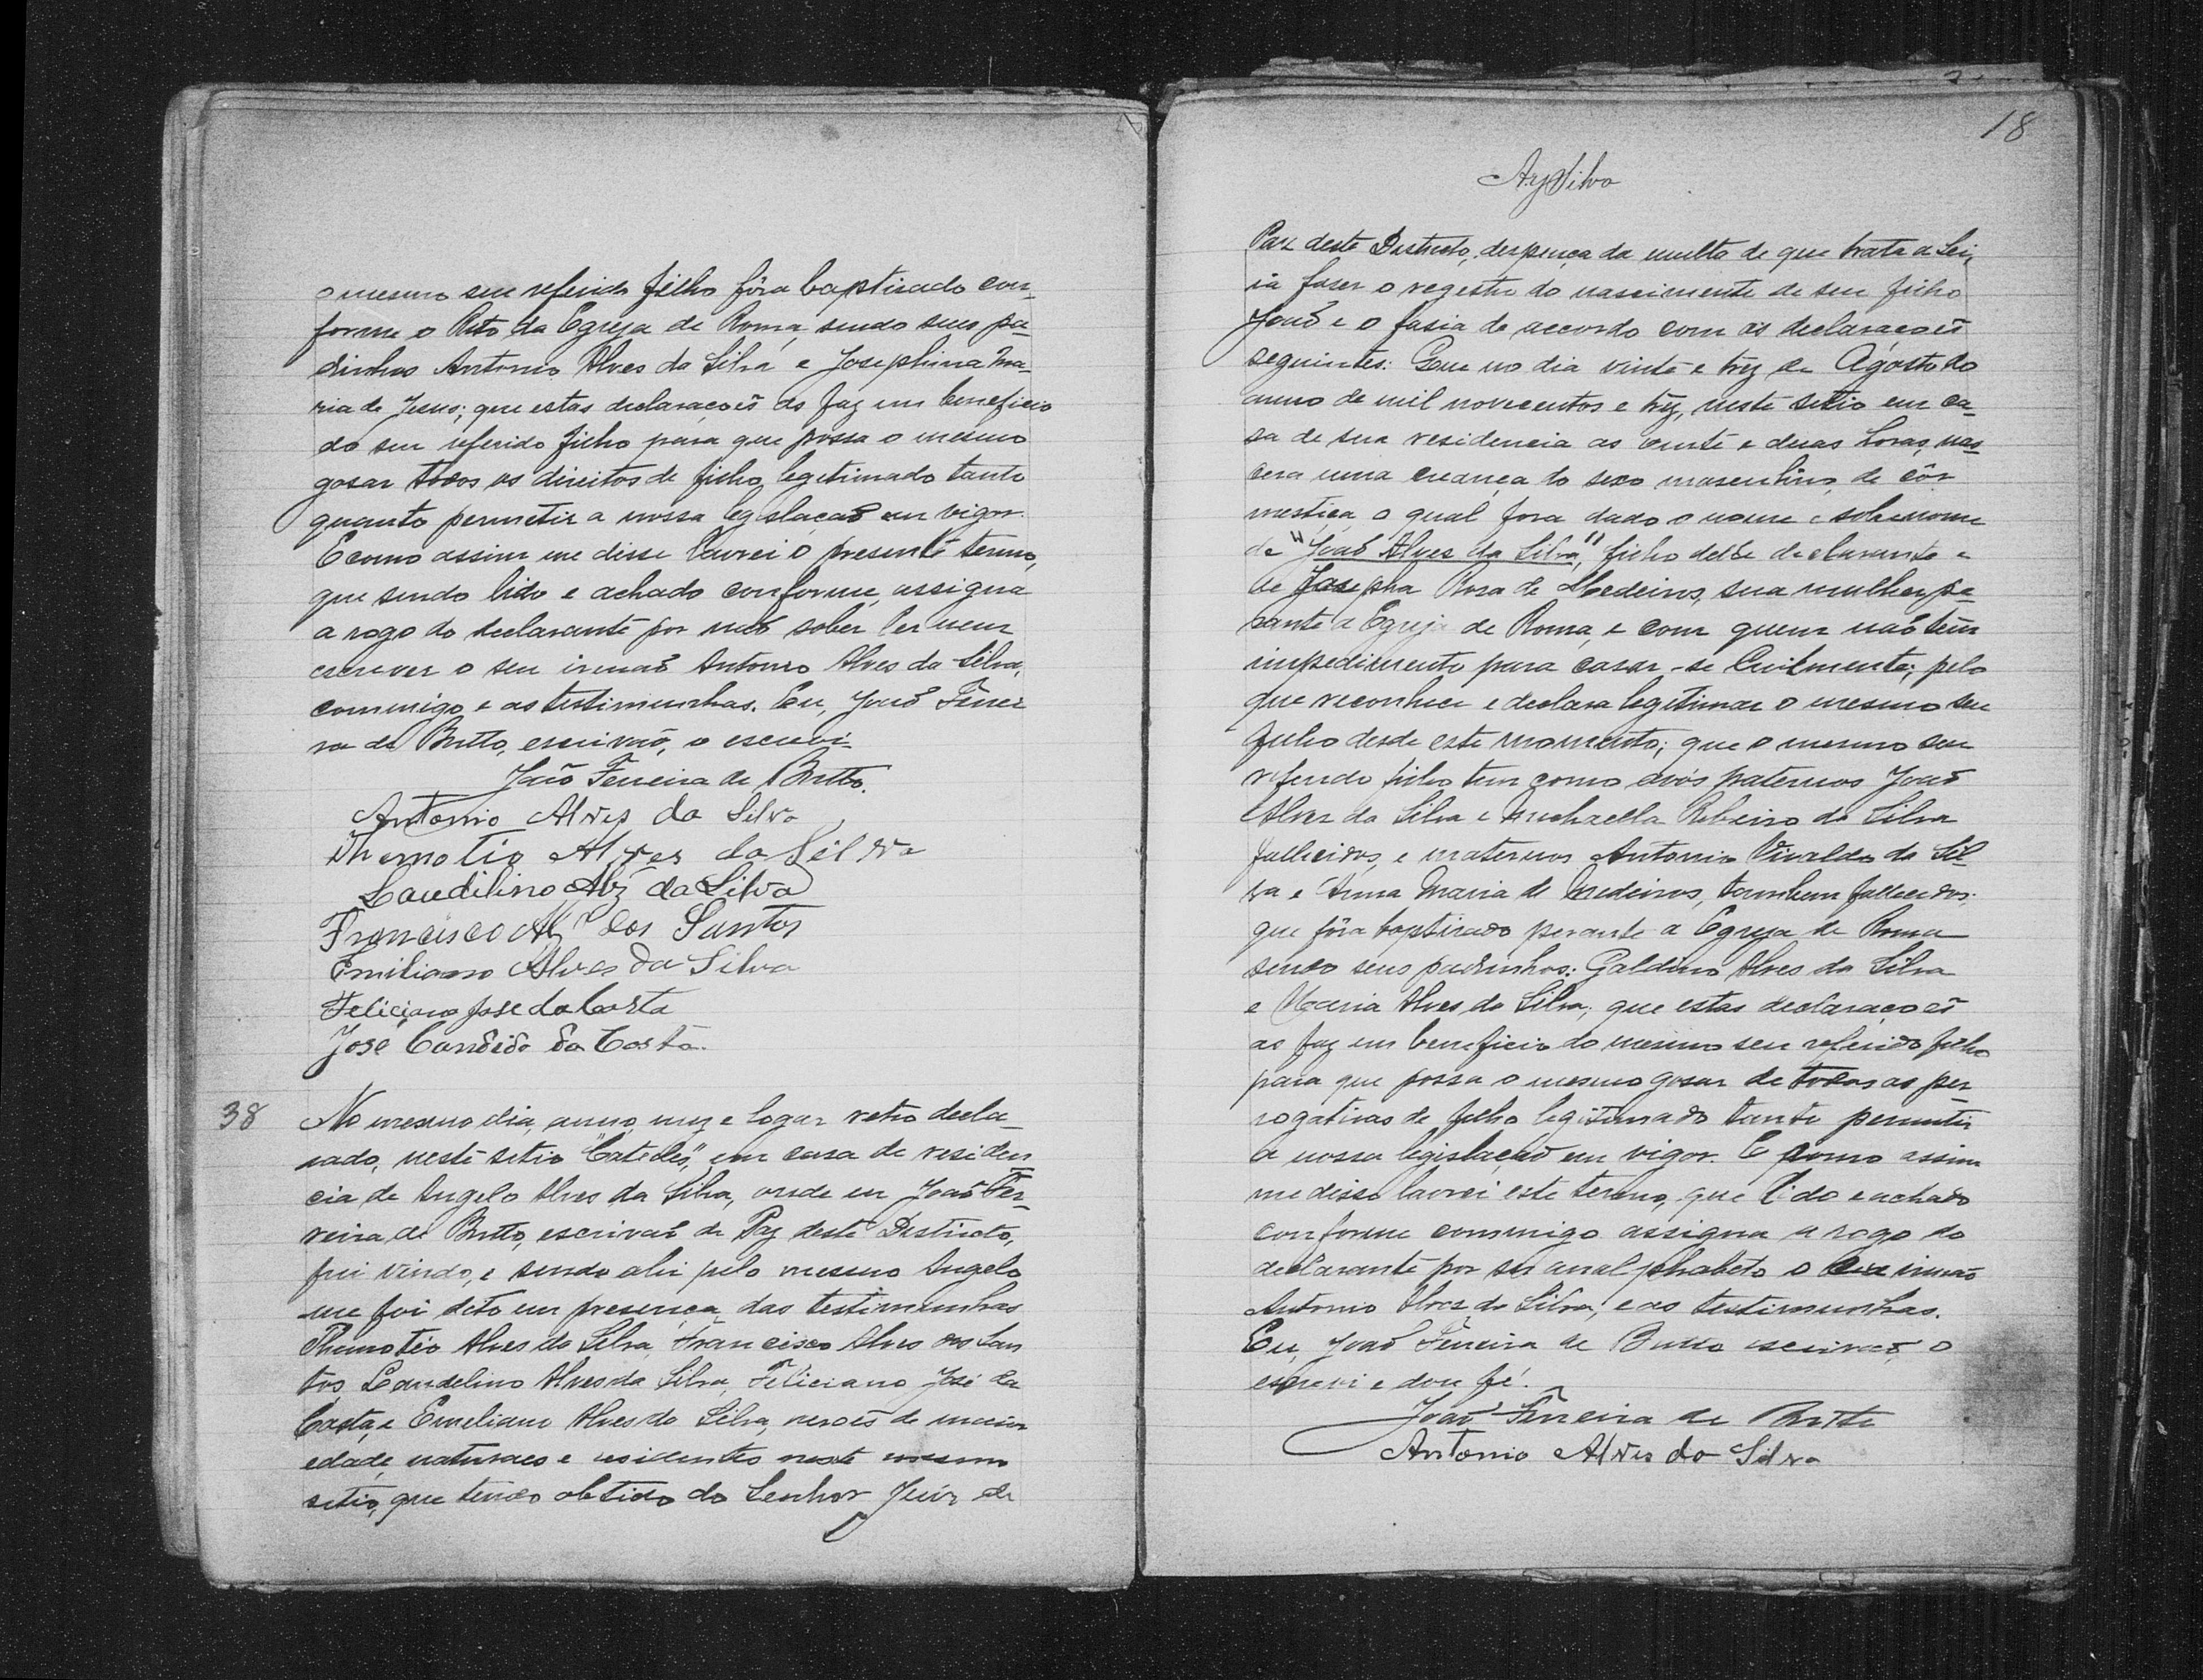 o mesmo seu referido filho fôra baptisado con-
forme o Rito da Egreja de Roma, sendo seus pa-
drinhos Antonio Alves da Silva e Josephina Ma-
ria de Jesus; que estas declaraçoẽs as faz em beneficio
do seu referido filho para que possa o mesmo
gosar todos os direitos de filho legitimado tanto
quanto permetir a nossa legislaçaõ em vigor.
E como assim me disse lavrei o presente termo,
que sendo lido e achado conforme, assigna
a rogo do declarante por naõ saber ler nem
escrever o seu irmaõ Antonio Alves da Silva,
commigo e as testimunhas. Eu, Joaõ Ferrei
ra de Britto, escrivaõ, o escrevi.
João Ferreira de Britto.
Antonio Alves da Silva
Themotio Alves da Silva
Laudilino Alz da Silva
Francisco Alz dos Santos
Emiliano Alves da Silva
Feliciano Jose da Costa
José Candido da Costa.
38 No mesmo dia, anno, mez e logar retro decla-
rado, neste sitio "Catolés", em casa de residen
cia de Angelo Alves da Silva, onde eu Joaõ Fer-
reira de Britto, escrivaõ de Paz deste Districto,
fui vindo, e sendo ahi pelo mesmo Angelo
me foi dito em presença das testimunhas
Themotio Alves da Silva, Francisco Alves dos San
tos, Laudelino Alves da Silva, Feliciano José da
Costa, e Emeliano Alves da Silva, de maior
edade, naturaes e residentes neste mesmo
sitio, que tendo obtido do Senhor Juiz de
18
AySilva
Paz deste Districto, despença da multa de que trata a Lei,
ia faser o registro do nascimento de seu filho
Joaõ e o fasia de accordo com as declaraçoẽs
seguintes: Que no dia vinte e trez de Agosto do
anno de mil novecentos e trez, neste sitio em ca-
sa de sua residencia as vinte e duas horas, nas-
cera uma creança do sexo masculino, de côr
mestiça, o qual fora dado o nome e sobrenome
de "Joaõ Alves da Silva", filho delle declarante e
de Josepha Rosa de Medeiros, sua mulher pe-
rante a Egreja de Roma, e com quem naõ tem
impedimento para casar-se Civilmente; pelo
que reconhece e declara legitimar o mesmo seu
filho desde este momento; que o mesmo seu
referido filho tem como avós paternos Joaõ
Alves da Silva e Michaella Ribeiro da Silva
fallecidos, e maternos Antonio Vivaldo da Sil-
va e Anna Maria de Medeiros, tambem fallecidos;
que fôra baptisado perante a Egreja de Roma
sendo seus padrinhos: Galdino Alves da Silva
e Maria Alves da Silva; que estas declaraçoẽs
as faz em beneficio do mesmo seu referido filho
para que possa o mesmo gosar de todas as per
rogativas de filho legitimado tanto permitir
a nossa legislaçaõ em vigor. E como assim
me disse lavrei este termo, que lido e achado
conforme commigo assigna a rogo do
declarante por ser analphabeto o seu irmaõ
Antonio Alves da Silva, e as testimunhas.
Eu, Joaõ Ferreira de Britto escrivaõ, o
escrevi e dou fé.
Joaõ Ferreira de Britto
Antonio Alves da Silva